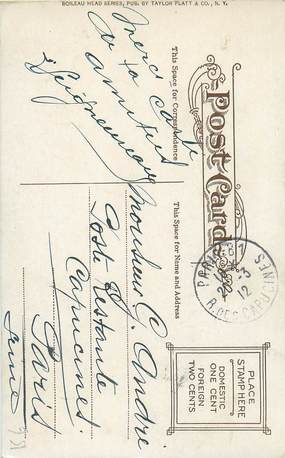 BOILEAU HEAD SERIES, PUB. BY TAYLOR PLATT & CO., N. Y.
Post Card
This Space for Correspondence
This Space for Name and Address
Merci carte
amitiés
PLACE
STAMP HERE
DOMESTIC
ONE CENT
FOREIGN
TWO CENTS
PARIS
3
12
R. DES CAPUCINES
Monsieur G. André
Poste Restante
Capucines
Paris
Seine